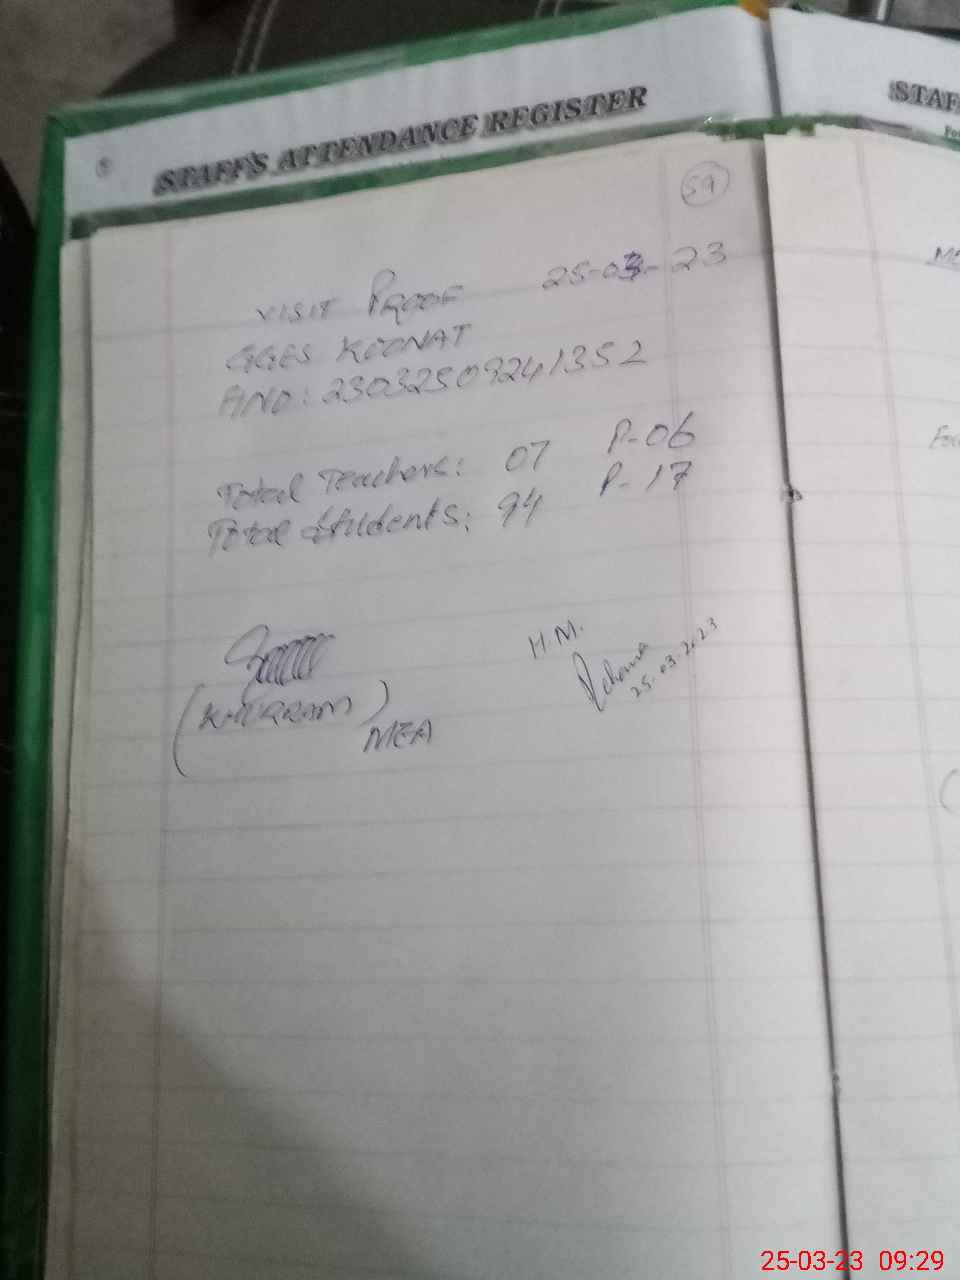 STAFF'S ATTENDANCE REGISTER
STAF
59
VISIT PROOF 25-03-23
GGES KOONAT
AND: 23032509241352
Total Teachers: 07 P-06
Total Students: 94 P-17
H.M.
25.03.2023
(KHURRAM)
MEA
25-03-23 09:29